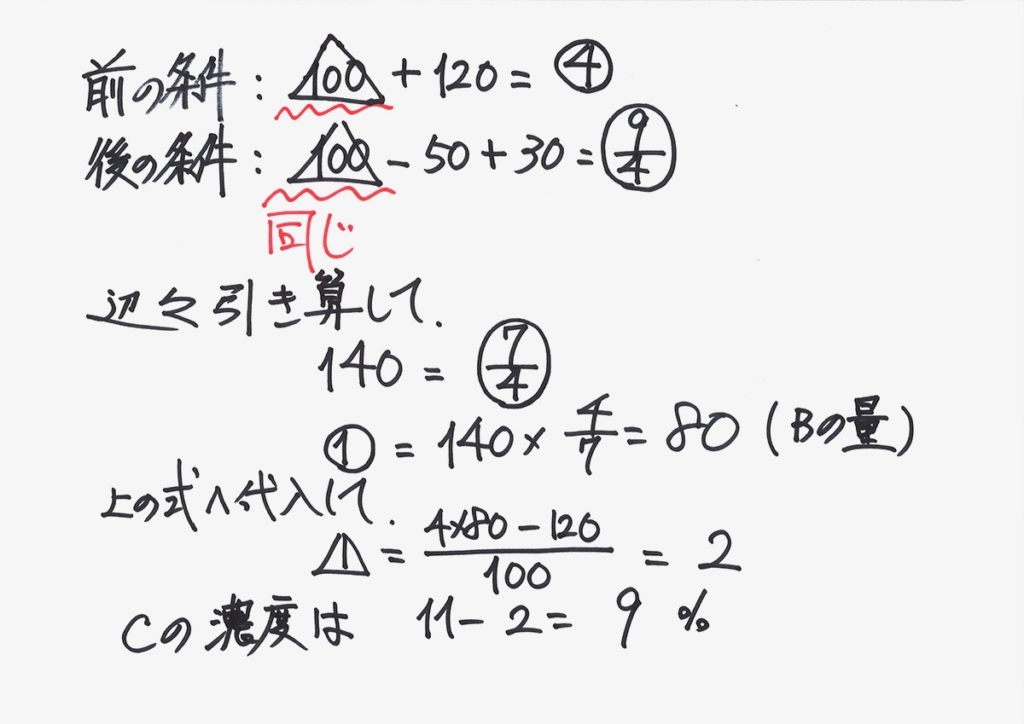 前の条件: △100 + 120 = ④
後の条件: △100 - 50 + 30 = (9/4)
同じ
辺々引き算して.
140 = (7/4)
① = 140 × 4/7 = 80 (Bの量)
上の式へ代入して.
△1 = (4×80 - 120)/100 = 2
Cの濃度は 11 - 2 = 9 %